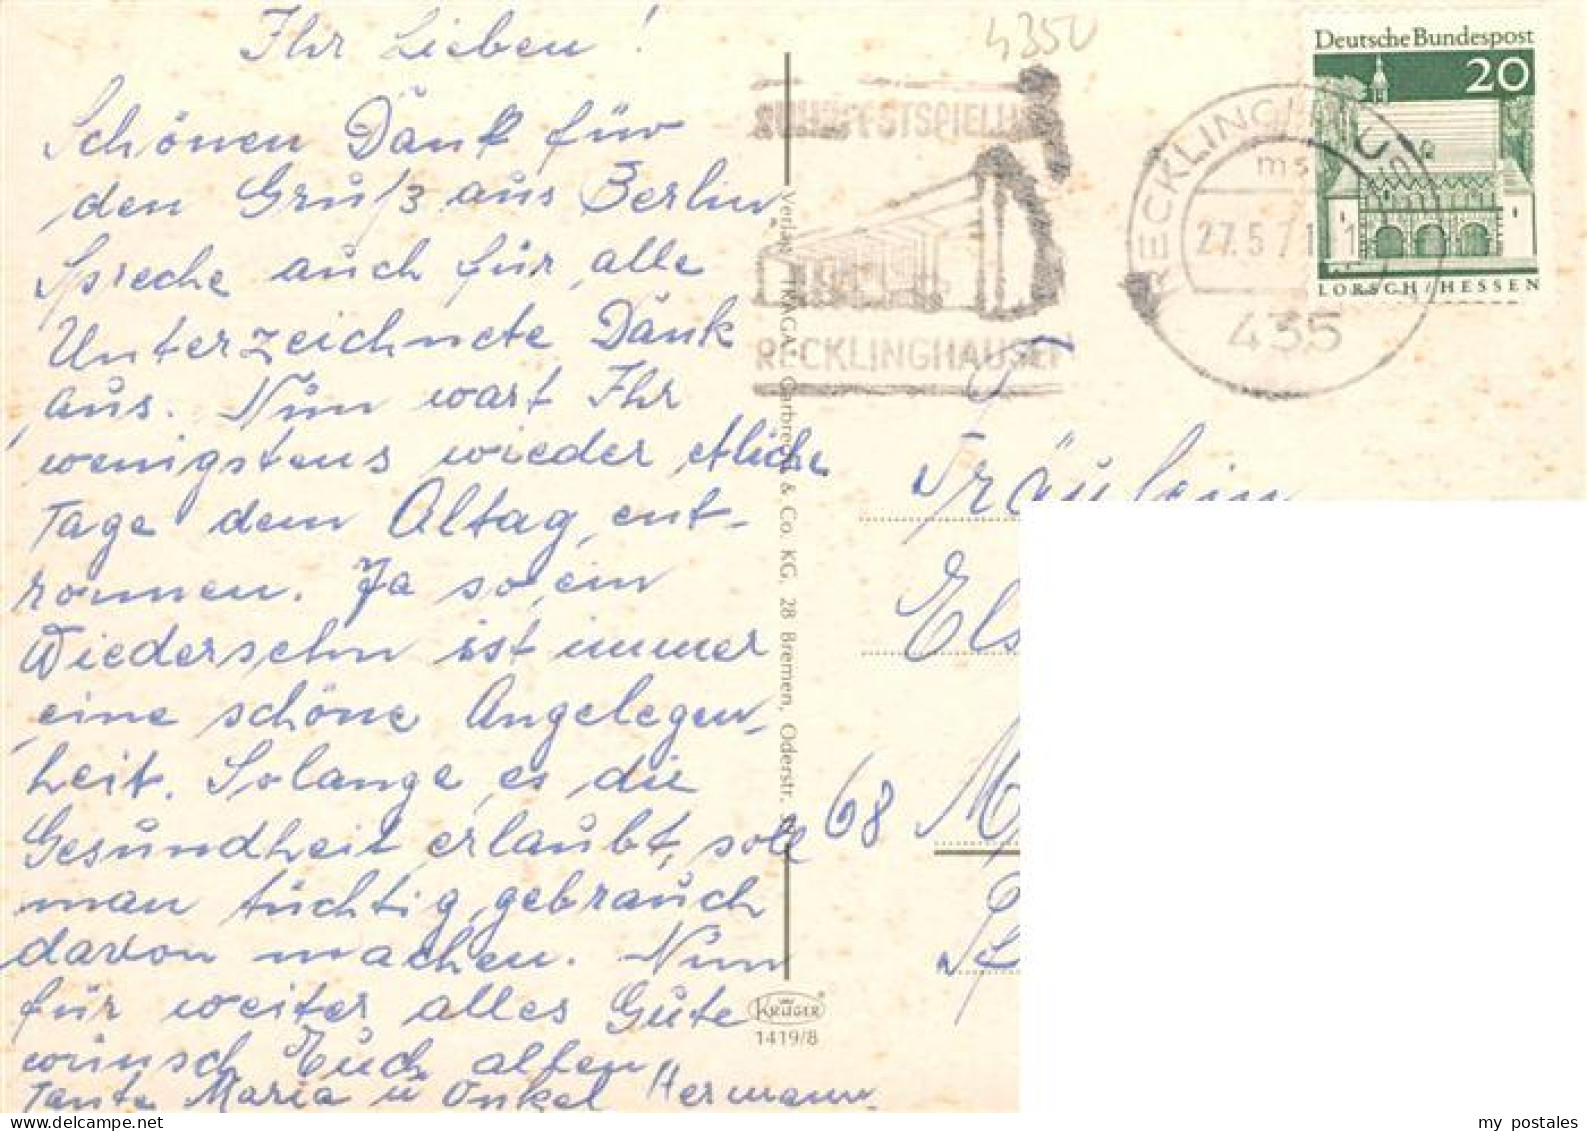 Ihr Lieben!
Schönen Dank für
den Gruß aus Berlin
Spreche auch für alle
Unterzeichnete Dank
aus. Nun wart Ihr
wenigstens wieder etliche
Tage dem Altag ent-
ronnen. Ja so ein
Wiedersehn ist immer
eine schöne Angelegen-
heit. Solange es die
Gesundheit erlaubt, soll
man tüchtig gebrauch
davon machen. Nun
für weiter alles Gute
wünsch Euch allen
Tante Maria u Onkel Hermann
4350
RUHRFESTSPIELE
RECKLINGHAUSEN
RECKLINGHAUSEN
ms
27.5.71
435
Deutsche Bundespost
20
LORSCH/HESSEN
Verlag TRAGA, Garbrecht & Co. KG, 28 Bremen, Oderstr.
Fräulein
Els
68 M
KRÜGER
1419/8
my postales